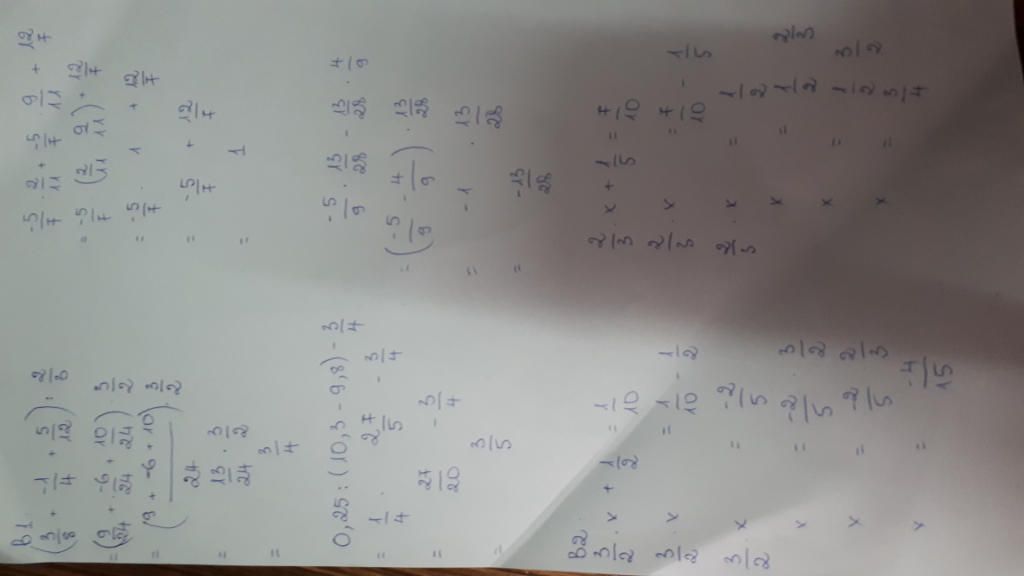 B1
(3/8 + -1/4 + 5/12) : 2/3
= (9/24 + -6/24 + 10/24) · 3/2
= (9 + -6 + 10)/24 · 3/2
= 13/24 · 3/2
= 3/4
0,25 : (10,3 - 9,8) - 3/4
= 1/4 · 27/5 - 3/4
= 27/20 - 3/4
= 3/5
B2
3/2 · x + 1/2 = 1/10
3/2 · x = 1/10 - 1/2
3/2 · x = -2/5
x = -2/5 · 3/2
x = -2/5 · 2/3
x = -4/15
-5/7 · 2/11 + -5/7 · 9/11 + 12/7
= -5/7 (2/11 9/11) + 12/7
= -5/7 · 1 + 12/7
= -5/7 + 12/7
= 1
-5/9 · 13/28 - 13/28 · 4/9
= (-5/9 - 4/9) · 13/28
= -1 · 13/28
= -13/28
2/3 · x + 1/5 = 7/10
2/3 · x = 7/10 - 1/5
2/3 · x = 1/2
x = 1/2 2/3
x = 1/2 3/2
x = 3/4